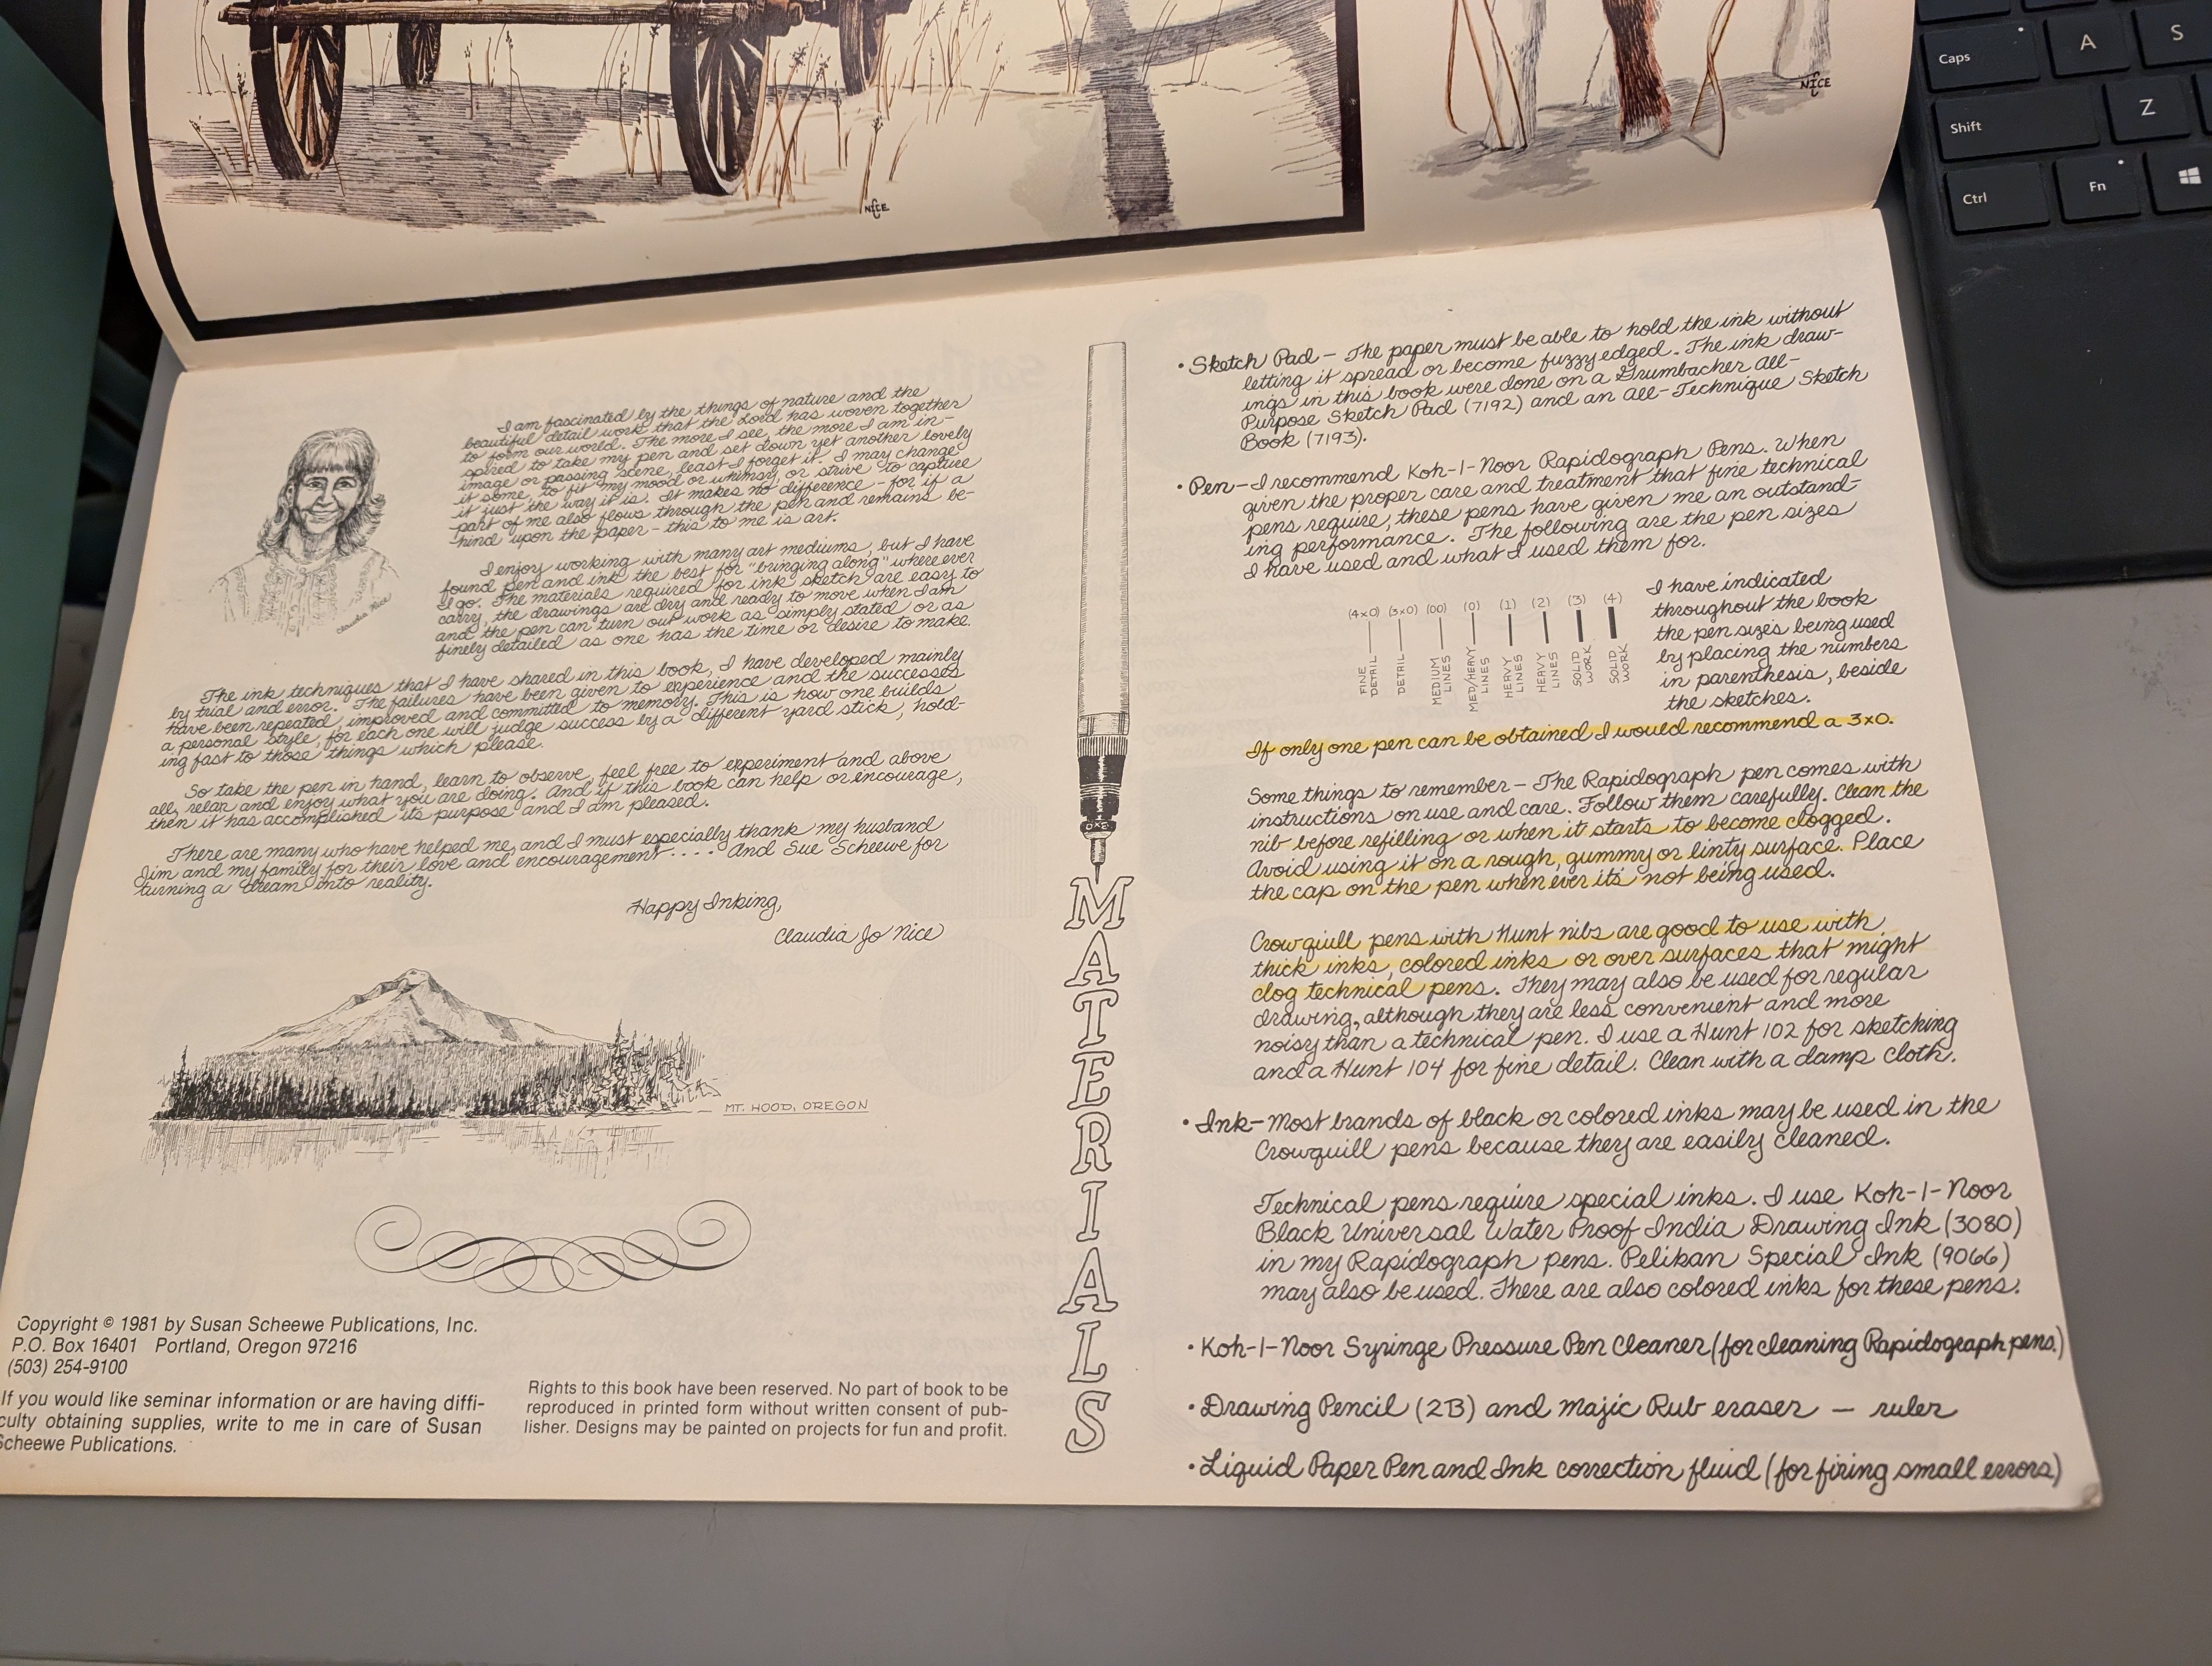 NICE
NICE
Caps
A
S
Shift
Z
Ctrl
Fn
I am fascinated by the things of nature and the
beautiful detail work that the Lord has woven together
to form our world. The more I see, the more I am in-
spired to take my pen and set down yet another lovely
image or passing scene, least I forget it. I may change
it some, to fit my mood or whimsy, or strive to capture
it just the way it is. It makes no difference - for if a
part of me also flows through the pen and remains be-
hind upon the paper - this to me is art.
Claudia Nice
I enjoy working with many art mediums, but I have
found pen and ink the best for "bringing along" where ever
I go. The materials required for ink sketch are easy to
carry, the drawings are dry and ready to move when I am
and the pen can turn out work as simply stated or as
finely detailed as one has the time or desire to make.
The ink techniques that I have shared in this book, I have developed mainly
by trial and error. The failures have been given to experience and the successes
have been repeated, improved and committed to memory. This is how one builds
a personal style, for each one will judge success by a different yard stick, hold-
ing fast to those things which please.
So take the pen in hand, learn to observe, feel free to experiment and above
all, relax and enjoy what you are doing. And if this book can help or encourage,
then it has accomplished its purpose and I am pleased.
There are many who have helped me, and I must especially thank my husband
Jim and my family for their love and encouragement .... And Sue Scheewe for
turning a dream into reality.
Happy Inking,
Claudia Jo Nice
MT. HOOD, OREGON
Copyright © 1981 by Susan Scheewe Publications, Inc.
P.O. Box 16401 Portland, Oregon 97216
(503) 254-9100
If you would like seminar information or are having diffi-
culty obtaining supplies, write to me in care of Susan
Scheewe Publications.
Rights to this book have been reserved. No part of book to be
reproduced in printed form without written consent of pub-
lisher. Designs may be painted on projects for fun and profit.
3x0
MATERIALS
• Sketch Pad - The paper must be able to hold the ink without
letting it spread or become fuzzy edged. The ink draw-
ings in this book were done on a Grumbacher All-
Purpose Sketch Pad (7192) and an All-Technique Sketch
Book (7193).
• Pen - I recommend Koh-I-Noor Rapidograph Pens. When
given the proper care and treatment that fine technical
pens require, these pens have given me an outstand-
ing performance. The following are the pen sizes
I have used and what I used them for.
(4x0) (3x0) (00) (0) (1) (2) (3) (4)
FINE DETAIL
DETAIL
MEDIUM LINES
MED/HEAVY LINES
HEAVY LINES
HEAVY LINES
SOLID WORK
SOLID WORK
I have indicated
throughout the book
the pen sizes being used
by placing the numbers
in parenthesis, beside
the sketches.
If only one pen can be obtained I would recommend a 3x0.
Some things to remember - The Rapidograph pen comes with
instructions on use and care. Follow them carefully. Clean the
nib before refilling or when it starts to become clogged.
Avoid using it on a rough, gummy or linty surface. Place
the cap on the pen when ever it's not being used.
Crowquill pens with Hunt nibs are good to use with
thick inks, colored inks or over surfaces that might
clog technical pens. They may also be used for regular
drawing, although they are less convenient and more
noisy than a technical pen. I use a Hunt 102 for sketching
and a Hunt 104 for fine detail. Clean with a damp cloth.
• Ink - Most brands of black or colored inks may be used in the
Crowquill pens because they are easily cleaned.
Technical pens require special inks. I use Koh-I-Noor
Black Universal Water Proof India Drawing Ink (3080)
in my Rapidograph pens. Pelikan Special Ink (9066)
may also be used. There are also colored inks for these pens.
• Koh-I-Noor Syringe Pressure Pen Cleaner (for cleaning Rapidograph pens.)
• Drawing Pencil (2B) and Majic Rub eraser - ruler
• Liquid Paper Pen and Ink correction fluid (for fixing small errors)